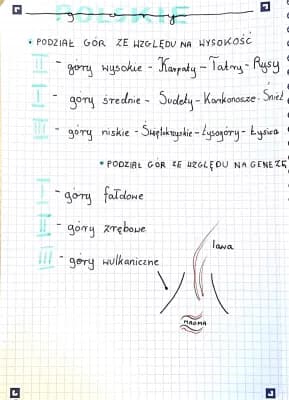 POLSKIE
• PODZIAŁ GÓR ZE WZGLĘDU NA WYSOKOŚĆ
II - góry wysokie - Karpaty - Tatry - Rysy
I - góry średnie - Sudety - Karkonosze - Śnież
III - góry niskie - Świętokrzyskie - Łysogóry - Łysica
• PODZIAŁ GÓR ZE WZGLĘDU NA GENEZĘ
I - góry fałdowe
II - góry zrębowe
III - góry wulkaniczne
lawa
MAGMA